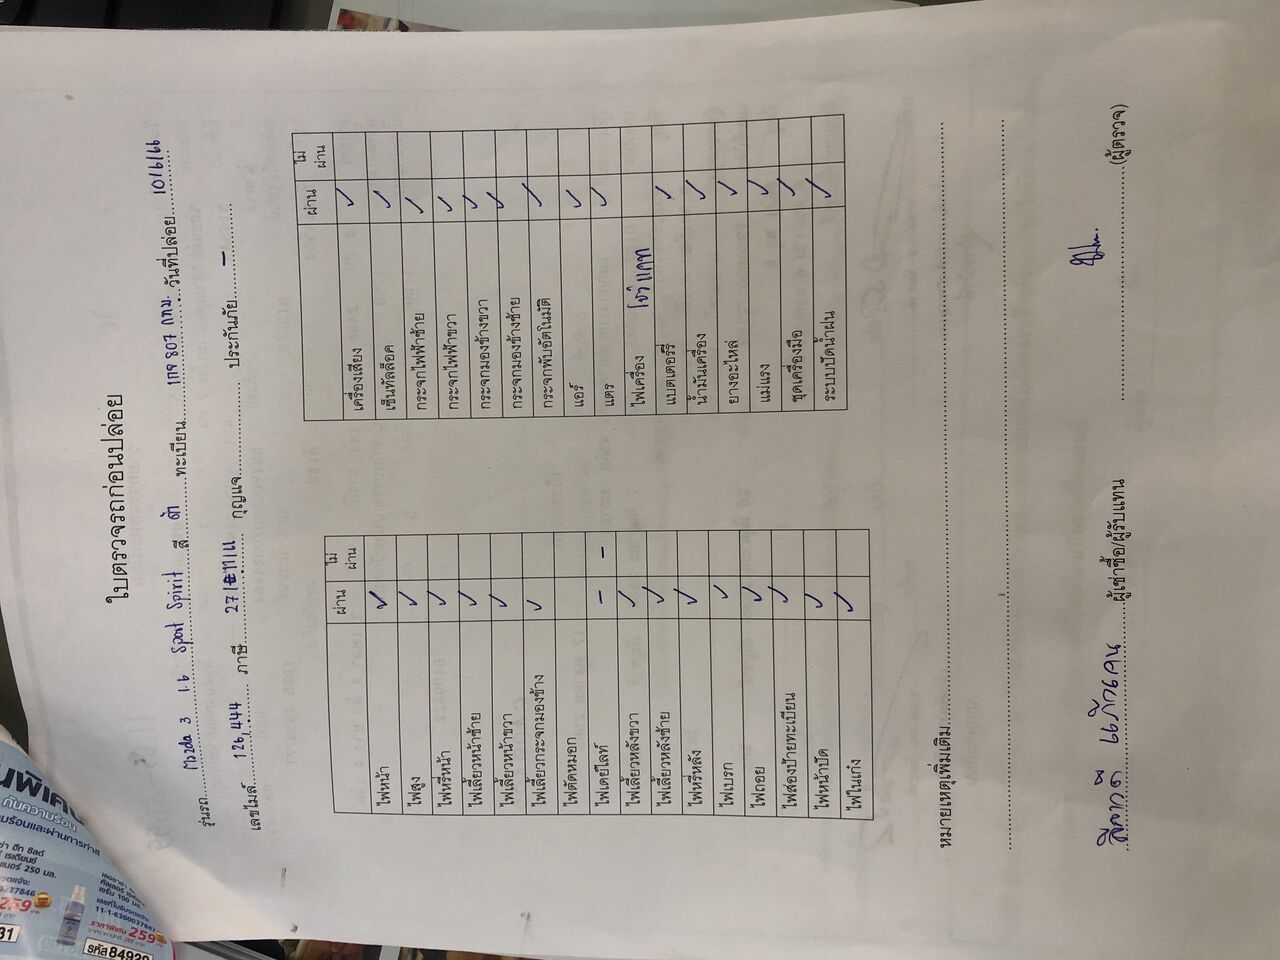 ใบตรวจรถก่อนปล่อย
รุ่นรถ Mazda 3 1.6 Sport Spirit สี ดำ ทะเบียน 1กจ 807 กทม. วันที่ปล่อย 10/6/66
เลขไมล์ 126,444 ภาษี 27/ กุญแจ ประกันภัย –
ผ่าน ไม่ผ่าน
ไฟหน้า ✓
ไฟสูง ✓
ไฟหรี่หน้า ✓
ไฟเลี้ยวหน้าซ้าย ✓
ไฟเลี้ยวหน้าขวา ✓
ไฟเลี้ยวกระจกมองข้าง ✓
ไฟตัดหมอก
ไฟเดย์ไลท์ – –
ไฟเลี้ยวหลังขวา ✓
ไฟเลี้ยวหลังซ้าย ✓
ไฟหรี่หลัง ✓
ไฟเบรก ✓
ไฟถอย ✓
ไฟส่องป้ายทะเบียน ✓
ไฟหน้าปัด ✓
ไฟในเก๋ง ✓
ผ่าน ไม่ผ่าน
เครื่องเสียง ✓
เซ็นทัลล็อค ✓
กระจกไฟฟ้าซ้าย ✓
กระจกไฟฟ้าขวา ✓
กระจกมองข้างขวา ✓
กระจกมองข้างซ้าย ✓
กระจกพับอัตโนมัติ ✓
แอร์ ✓
แตร ✓
ไฟเครื่อง โชว์แกท
แบตเตอรรี่ ✓
น้ำมันเครื่อง ✓
ยางอะไหล่ ✓
แม่แรง ✓
ชุดเครื่องมือ ✓
ระบบปัดน้ำฝน ✓
หมายเหตุเพิ่มเติม
ผู้เช่าซื้อ/ผู้รับแทน
(ผู้ตรวจ)
กันความร้อน
250 มล.
259
31
ราคาพิเศษ 259
รหัส 84920